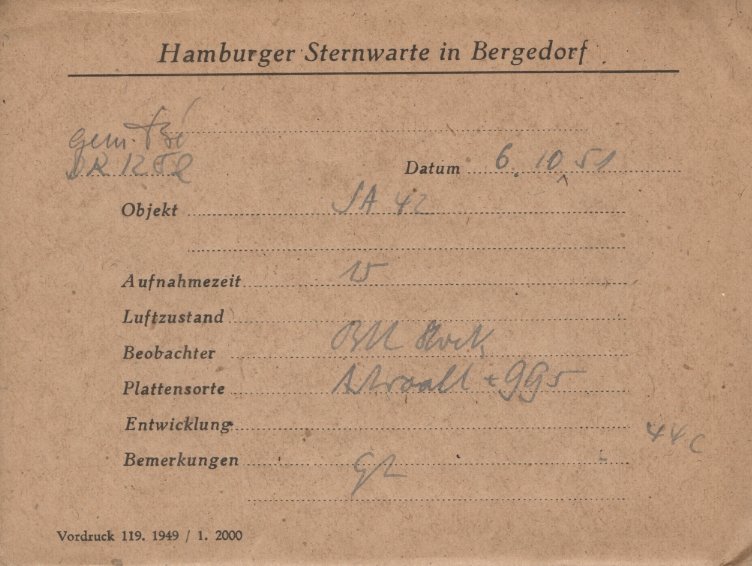 Hamburger Sternwarte in Bergedorf
gem.
Datum 6. 10 51
Objekt SA 42
Aufnahmezeit 15
Luftzustand
Beobachter
Plattensorte
Entwicklung
44c
Bemerkungen
Vordruck 119. 1949 / 1. 2000